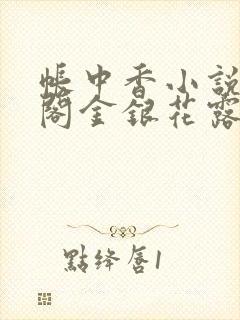 帳中香小說
閣金銀花露
點絳唇1